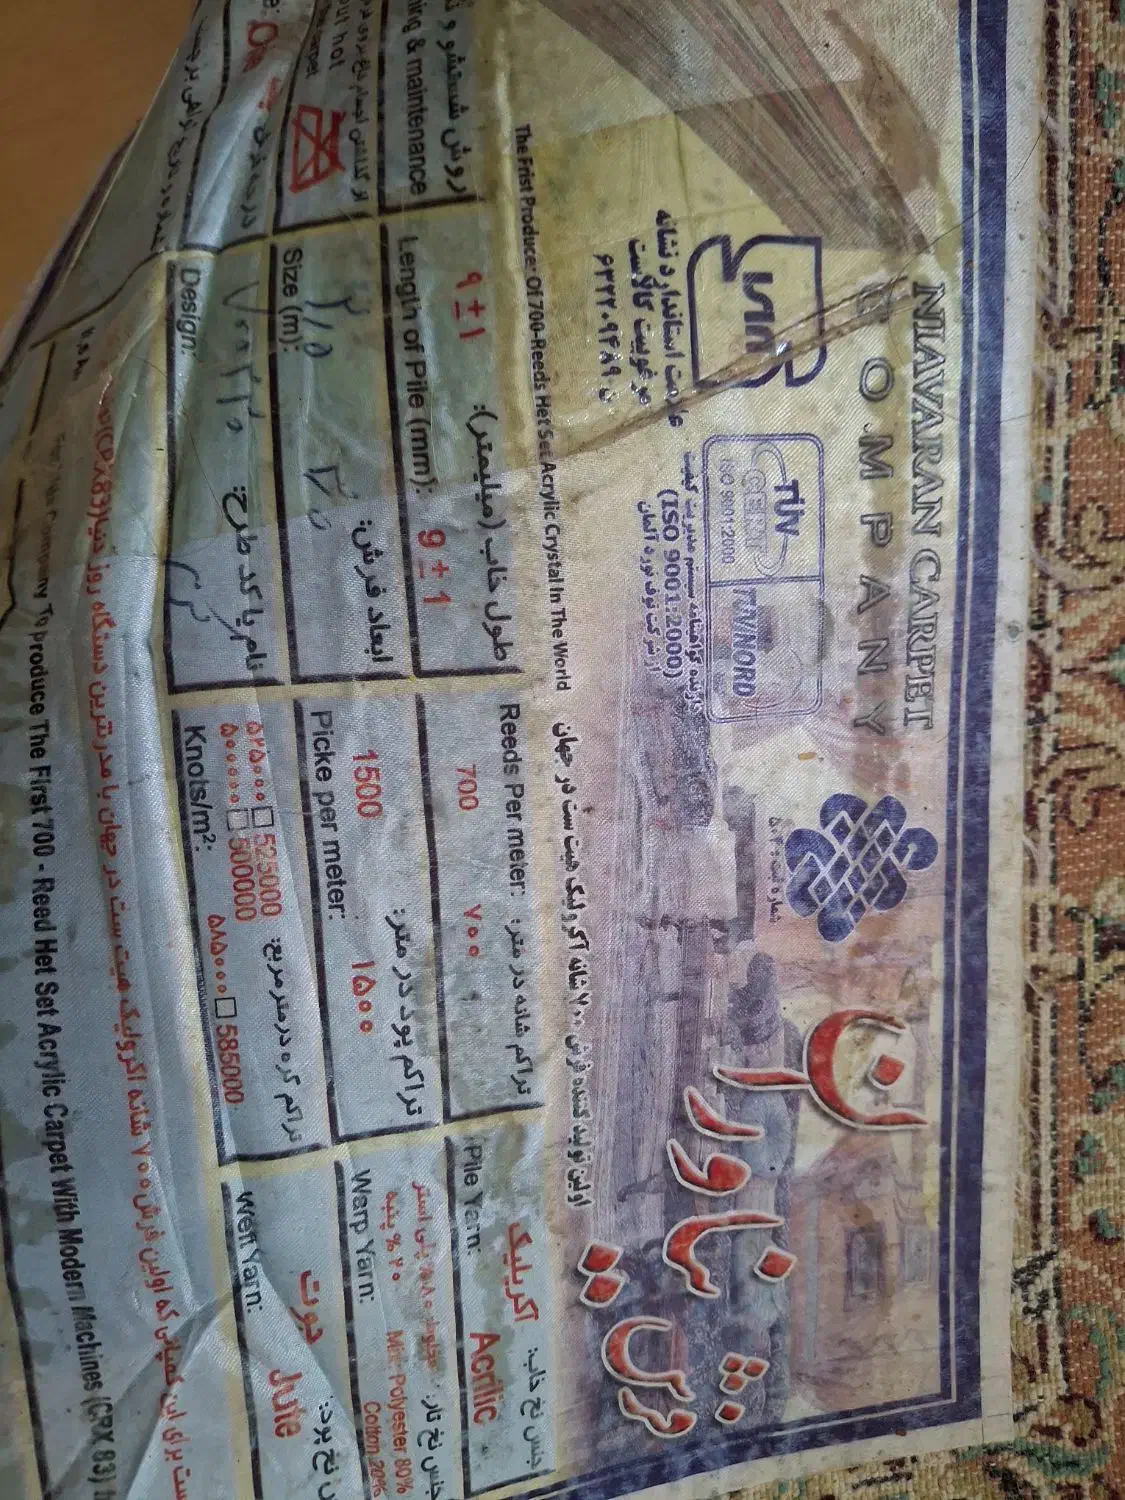 NIAVARAN CARPET
COMPANY
فرش نیاوران
شماره ثبت
علامت استاندارد نشانه
مرغوبیت کالاست
۶۳۲۲۰۹۴۸۹
TÜV
CERT
TÜV NORD
ISO 9001:2000
دارنده گواهینامه سیستم مدیریت کیفیت
(ISO 9001:2000)
از شرکت توف نورد آلمان
The Frist Producer Of 700-Reeds Het Set Acrylic Crystal In The World
اولین تولید کننده فرش ۷۰۰ شانه آکرولیک هیت ست در جهان
روش شستشو و
& maintenance
طول خاب (میلیمتر): ۹ ± ۱
Length of Pile (mm): 9 ± 1
تراکم شانه در متر: ۷۰۰
Reeds Per meter: 700
جنس نخ خاب: آکریلیک
Pile Yarn: Acrilic
hot
carpet
ابعاد فرش:
Size (m):
تراکم پود در متر: ۱۵۰۰
Picke per meter: 1500
جنس نخ تار:
پلی استر
۲۰ % پنبه
Warp Yarn:
Mix Polyester 80%
Cotton 20%
نام یا کد طرح:
Design:
تراکم گره در متر مربع:
۵۲۵۰۰۰ 525000
۵۰۰۰۰۰ 500000
۵۸۵۰۰۰ 585000
Knots/m²:
نخ پود: جوت
Weft Yarn: Jute
ست برای این کمپانی که اولین فرش ۷۰۰ شانه آکرولیک هیت ست در جهان با مدرنترین دستگاه روز دنیا (CRX83)
Company To produce The First 700 - Reed Het Set Acrylic Carpet With Modern Machines (CRX 83)